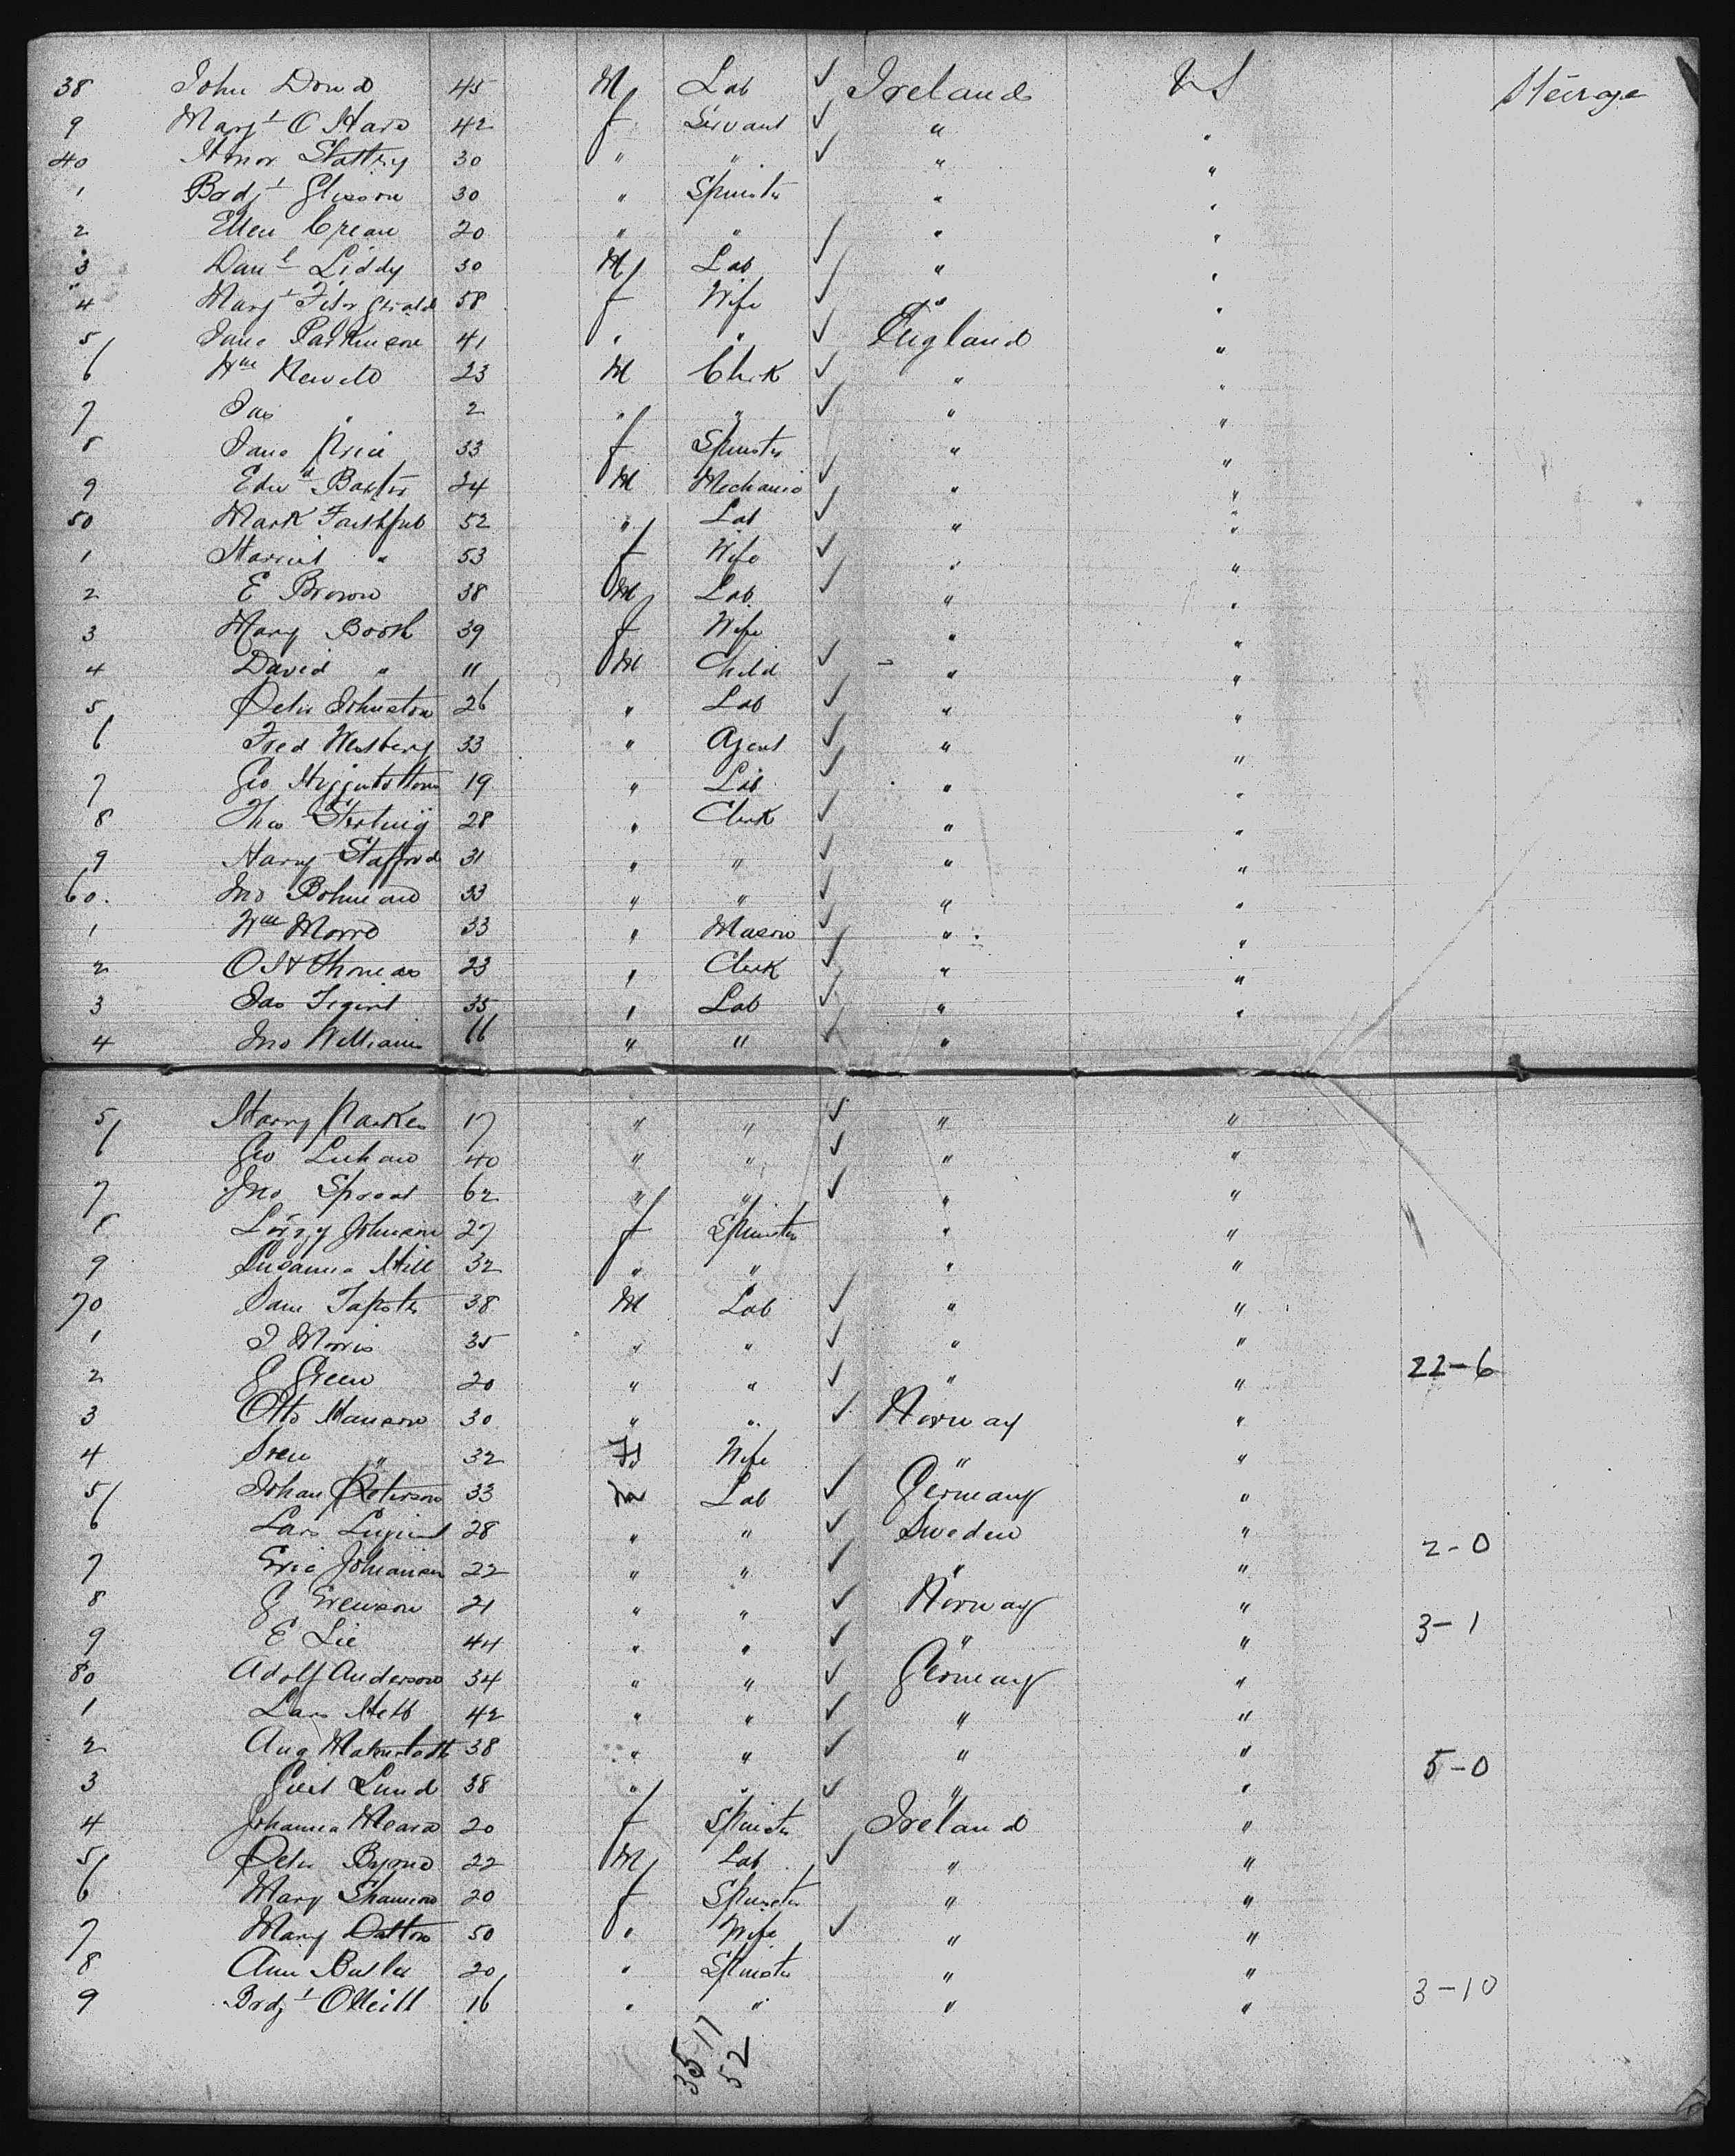 38 John Dowd 45 M Lab ✓ Ireland US Steerage
9 Margt O Hara 42 f Servant ✓ " "
40 Honor Slattery 30 " " ✓ " "
1 Bridgt Gleeson 30 " Spinster " "
2 Ellen Crean 20 " " ✓ " "
3 Danl Liddy 30 M Lab ✓ " "
4 Margt Fitzgerald 58 f Wife ✓ " "
5 Jane Parkinson 41 " " ✓ England "
6 Wm 23 M Clerk ✓ " "
7 Jas " 2 " " ✓ " "
8 Jane Price 33 f Spinster " "
9 Edwd Baxter 24 M Mechanic ✓ " "
50 Mark Faithful 52 " Lab ✓ " "
1 Harriet " 53 f Wife ✓ " "
2 E Brown 38 M Lab ✓ " "
3 Mary Booth 39 f Wife " "
4 David " 11 M Child ✓ " "
5 Peter Johnston 26 " Lab ✓ " "
6 Fred Westberg 33 " Agent ✓ " "
7 Geo 19 " Lab ✓ " "
8 Thos Sterling 28 " Clerk ✓ " "
9 Harry Stafford 31 " " ✓ " "
60 Jno 33 " " ✓ " "
1 Wm 33 " Mason ✓ " "
2 O H Thomas 23 " Clerk ✓ " "
3 Jas 35 " Lab ✓ " "
4 Jno Williams 66 " " ✓ "
5 Harry Parker 17 " " ✓ " "
6 Geo 40 " " ✓ " "
7 Jno Sproat 62 " " ✓ " "
8 Lizzy Johnson 27 f Spinster " "
9 Susanna Hill 32 " " " "
70 Sam 38 M Lab ✓ " "
1 J Morris 35 " " ✓ " "
2 G Green 20 " " ✓ " " 22-6
3 Otto Hanson 30 " " ✓ Norway "
4 " 32 F Wife " "
5 Johan Peterson 33 m Lab ✓ Germany "
6 Lars 28 " " ✓ Sweden " 2-0
7 Eric Johansen 22 " " ✓ " "
8 G Evenson 21 " " ✓ Norway "
9 E Lie 44 " " ✓ " " 3-1
80 Adolf Anderson 34 " " ✓ Germany "
1 Lars 42 " " ✓ " "
2 Aug 38 " " ✓ " "
3 Lund 38 " " ✓ " " 5-0
4 Johanna Meara 20 f Spinster Ireland "
5 Peter Byrne 22 M Lab ✓ " "
6 Mary Shannon 20 f Spinster " "
7 Mary Dalton 50 " Wife ✓ " "
8 Ann Butler 20 " Spinster " "
9 Bridgt ONeill 16 " " " " 3-10
35-17
52